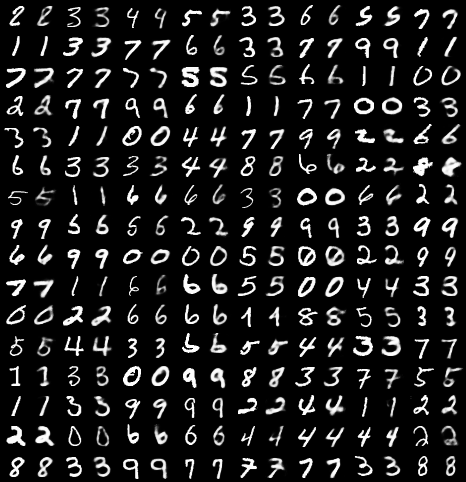 2 2 3 3 4 4 5 5 3 3 6 6 5 5 7 7
1 1 3 3 7 7 6 6 3 3 7 7 9 9 1 1
7 7 7 7 7 7 5 5 5 5 6 6 1 1 0 0
2 2 7 7 9 9 6 6 1 1 7 7 0 0 3 3
3 3 1 1 0 0 4 4 7 7 9 9 2 2 6 6
6 6 3 3 3 3 4 4 8 8 6 6 2 2 8 8
5 5 1 1 6 6 6 6 3 3 0 0 6 6 2 2
9 9 5 6 5 6 2 2 9 9 9 9 3 3 9 9
6 6 9 9 0 0 0 0 5 5 0 0 2 2 9 9
7 7 1 1 6 6 6 6 5 5 0 0 4 4 3 3
0 0 2 2 6 6 6 6 1 1 8 8 5 5 3 3
5 5 4 4 3 3 6 6 5 5 4 4 3 3 7 7
1 1 3 3 0 0 9 9 8 8 3 3 7 7 5 5
1 1 3 3 9 9 9 9 2 2 4 4 1 1 2 2
2 2 0 0 6 6 6 6 4 4 4 4 4 4 2 2
8 8 3 3 9 9 7 7 7 7 7 7 3 3 8 8